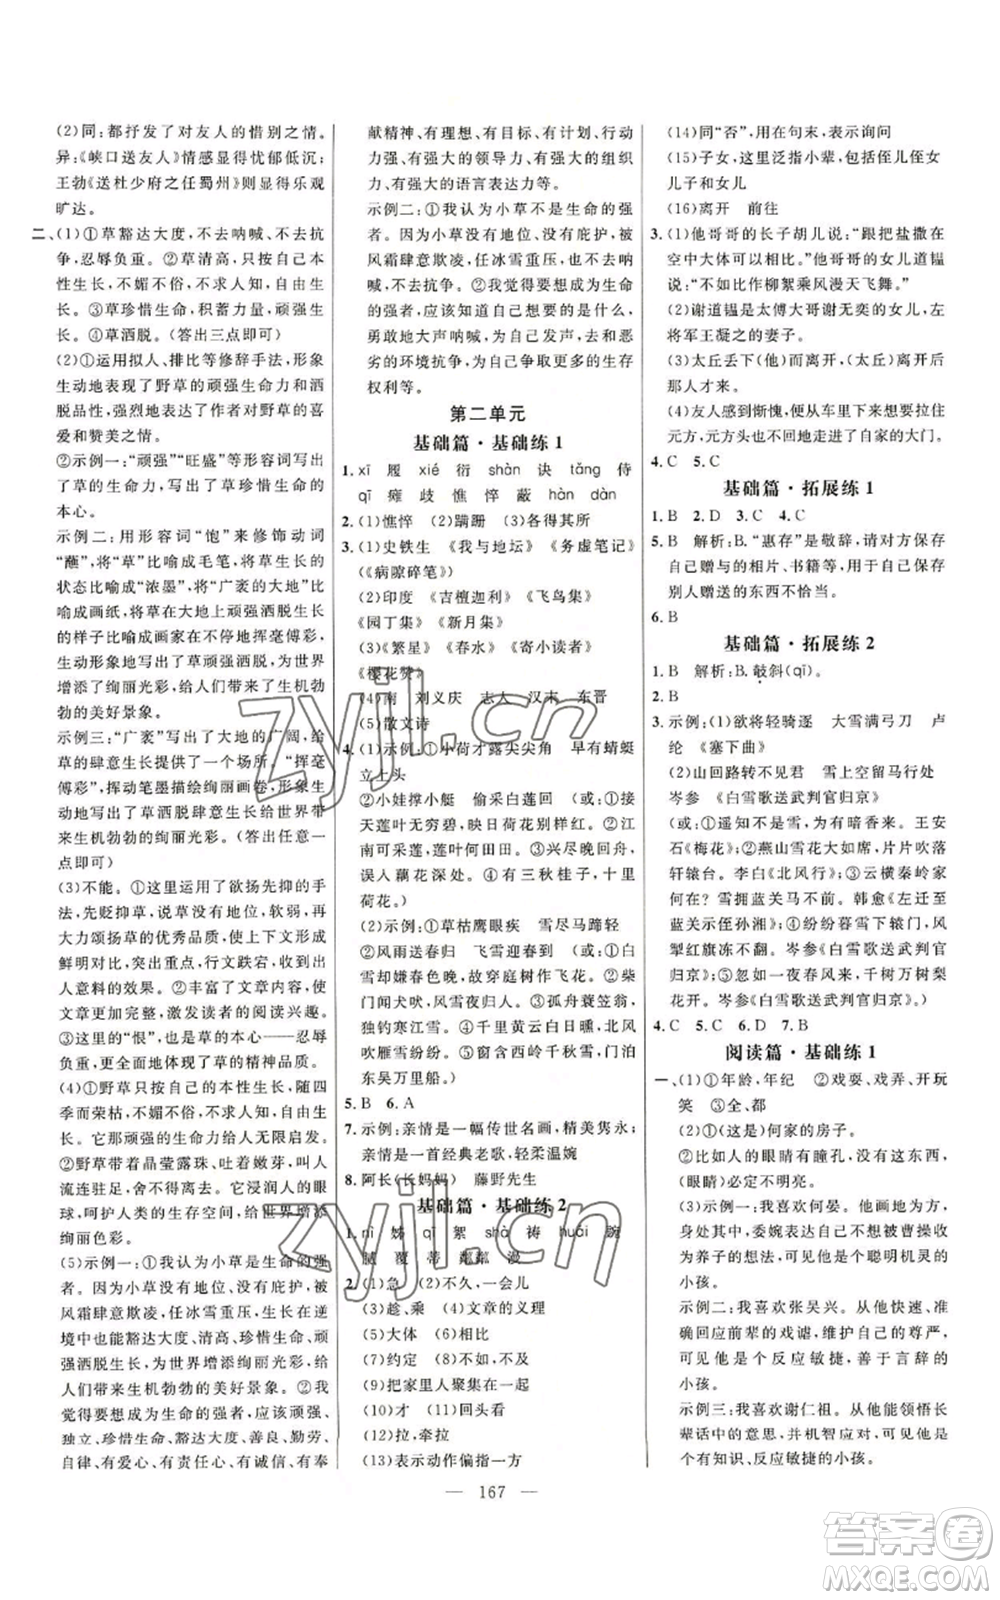 (2)同:都抒发了对友人的惜别之情。
异:《峡口送友人》情感显得忧郁低沉;
王勃《送杜少府之任蜀州》显得乐观
旷达。
二、(1)①草豁达大度,不去呐喊、不去抗
争,忍辱负重。②草清高,只按自己本
性生长,不媚不俗,不求人知,自由生
长。③草珍惜生命,积蓄力量,努力生
长。④草洒脱。(答出三点即可)
(2)①运用拟人、排比等修辞手法,形象
生动地表现了野草的顽强生命力和洒
脱品性,强烈地表达了作者对野草的喜
爱和赞美之情。
②示例一:“顽强”“旺盛”等形容词写出
了草的生命力,写出了草珍惜生命的
本心。
示例二:用形容词“饱”来修饰动词
“蘸”,将草比喻成毛笔,将草生长的
状态比喻成“浓墨”,将“广袤的大地”比
喻成画纸,将草在大地上顽强洒脱生长
的样子比喻成画家在不停地挥毫傅彩,
形象地写出了草顽强洒脱生长,为世界
增添了绚丽光彩,给人们带来了生机勃
勃的美好景象。
示例三:“广袤”写出了大地的广阔,给
草的肆意生长提供了一个场所。“挥毫
傅彩”,挥动笔墨描绘绚丽画卷,形象生
动地写出了草的洒脱生长给世界带来
生机勃勃的绚丽光彩。(答出任意一
点即可)
(3)不能。①这里运用了欲扬先抑的手
法,先贬抑草,说草没有地位,软弱,再
大力颂扬草的优秀品质,使上下文形成
鲜明对比,突出重点,行文跌宕,收到出
人意料的效果。②丰富了文章内容,使
文章更加完整,激发读者的阅读兴趣。
③这里的“恨”,也是草的本心——忍辱
负重,更全面地体现了草的精神品质。
(4)①野草只按自己的本性生长,随四
季而荣枯,不媚不俗,不求人知,自由生
长。②那顽强的生命力给人无限启示。
③野草带着晶莹露珠、吐着嫩芽,叫人
流连往返、目不暇接。它浸润人的眼
球,呵护人类的生存空间,给世界增添
绚丽色彩。
(5)示例一:①我认为小草是生命的强
者。因为小草没有地位、没有庇护,被
风霜肆意欺凌,任冰雪重压,但是小草在逆
境中也能豁达大度、清高、珍惜生命、顽
强洒脱生长,为世界增添绚丽光彩,给
人们带来生机勃勃的美好景象。②我
觉得要想成为生命的强者,应该顽强、
独立、珍惜生命、豁达大度、善良、勤劳、
自律、有行动力、有自信、有诚信、有奉
献精神、有理想、有目标、有计划、行动
力强、有强大的领导力、有强大的组织
力、有强大的语言表达力等。
示例二:①我认为小草不是生命的强
者。因为小草没有地位、没有庇护,被
风霜肆意欺凌,任冰雪重压,不去呐喊,
不去抗争。②我觉得要想成为生命的
强者,应该知道自己想要的是什么,
勇敢地大声呐喊,用实际行动去和恶
劣的环境抗争,为自己争取更多的生存
权利等。
第二单元
基础篇·基础练1
1. xī 履 xié 衍 shàn 诀 tǎng 侍
qī 瘫 歧 憔 悴 蔽 hàn dàn
2. (1)憔悴 (2)蹒跚 (3)各得其所
3. (1)史铁生 《我与地坛》 《务虚笔记》
(《病隙碎笔》)
(2)印度 《吉檀迦利》 《飞鸟集》
《园丁集》 《新月集》
(3)《繁星》 《春水》 《寄小读者》
《樱花赞》
(4)南 刘义庆 志人 汉末 东晋
(5)散文诗
4. (1)示例:①小荷才露尖尖角 早有蜻蜓
立上头
②小娃撑小艇 偷采白莲回 (或:①接
天莲叶无穷碧,映日荷花别样红。②江
南可采莲,莲叶何田田。③兴尽晚回舟,
误入藕花深处。④有三秋桂子,十里
荷花。)
(2)示例:①草枯鹰眼疾 雪尽马蹄轻
②风雨送春归 飞雪迎春到 (或:①白
雪却嫌春色晚,故穿庭树作飞花。②柴
门闻犬吠,风雪夜归人。③孤舟蓑笠翁,
独钓寒江雪。④千里黄云白日曛,北风
吹雁雪纷纷。⑤窗含西岭千秋雪,门泊
东吴万里船。)
5. B 6. A
7. 示例:亲情是一幅传世名画,精美隽永;
亲情是一首经典老歌,轻柔温婉。
8. 阿长(长妈妈) 藤野先生
基础篇·基础练2
2. (1)急 (2)不久,一会儿
(3)趁、乘 (4)文章的义理
(5)大体 (6)相比
(7)约定 (8)不如,不及
(9)把家里人聚集在一起
(10)才 (11)回头看
(12)拉,牵拉
(13)表示动作偏指一方
(14)同“否”,用在句末,表示询问
(15)子女,这里泛指小辈,包括侄儿侄女
儿子和女儿
(16)离开 前往
3. (1)他哥哥的长子胡儿说:“跟把盐撒在
空中大体可以相比。”他哥哥的女儿道韫
说:“不如比作柳絮乘风漫天飞舞。”
(2)谢道韫是太傅大哥谢无奕的女儿,左
将军王凝之的妻子。
(3)太丘丢下(他)而离开了,(太丘)离开后
那人才来。
(4)友人感到惭愧,便从车里下来拉住
元方,元方头也不回地走进了自家的大门。
4. C 5. C
基础篇·拓展练1
1. B 2. D 3. C 4. C
5. B 解析:B.“惠存”是敬辞,适用于保存
自己赠与的相片、书籍等,用于自己保存
别人赠送的东西不恰当。
6. B
基础篇·拓展练2
1. B 解析:B. 攲斜(qī)。
2. B
3. 示例:(1)欲将轻骑逐 大雪满弓刀 卢
纶 《塞下曲》
(2)山回路转不见君 雪上空留马行处
岑参 《白雪歌送武判官归京》
(或:①遥知不是雪,为有暗香来。王安
石《梅花》;②燕山雪花大如席,片片吹落
轩辕台。李白《北风行》;③云横秦岭家
何在?雪拥蓝关马不前。韩愈《左迁至
蓝关示侄孙湘》;④纷纷暮雪下辕门,风
掣红旗冻不翻。岑参《白雪歌送武判官
归京》;⑤忽如一夜春风来,千树万树梨
花开。岑参《白雪歌送武判官归京》。)
4. C 5. C 6. D 7. B
阅读篇·基础练1
一、(1)①年龄,年纪 ②戏耍、戏弄、开玩
笑 ③全、都
(2)①(这是)何家的房子。
②比如人的眼睛有瞳孔,没有这东西,
(眼睛)必定不明亮。
(3)示例一:我喜欢何晏。他用画地为方,
身处其中,委婉地表达了没有被曹操收
为养子的想法,可见他是个聪明机灵的
小孩。
示例二:我喜欢张吴兴。从他用犀利的言辞
回应前辈的戏谑,维护自己的尊严,
可见他是个反应敏捷,善于言辞的
小孩。
示例三:我喜欢谢仁祖。从他能领悟长
辈话中的深意,并机智应对,可见他
是个有领悟、反应敏捷的小孩。
167
zyjl.cn
zyjl.cn
答案圈
MXQE.COM